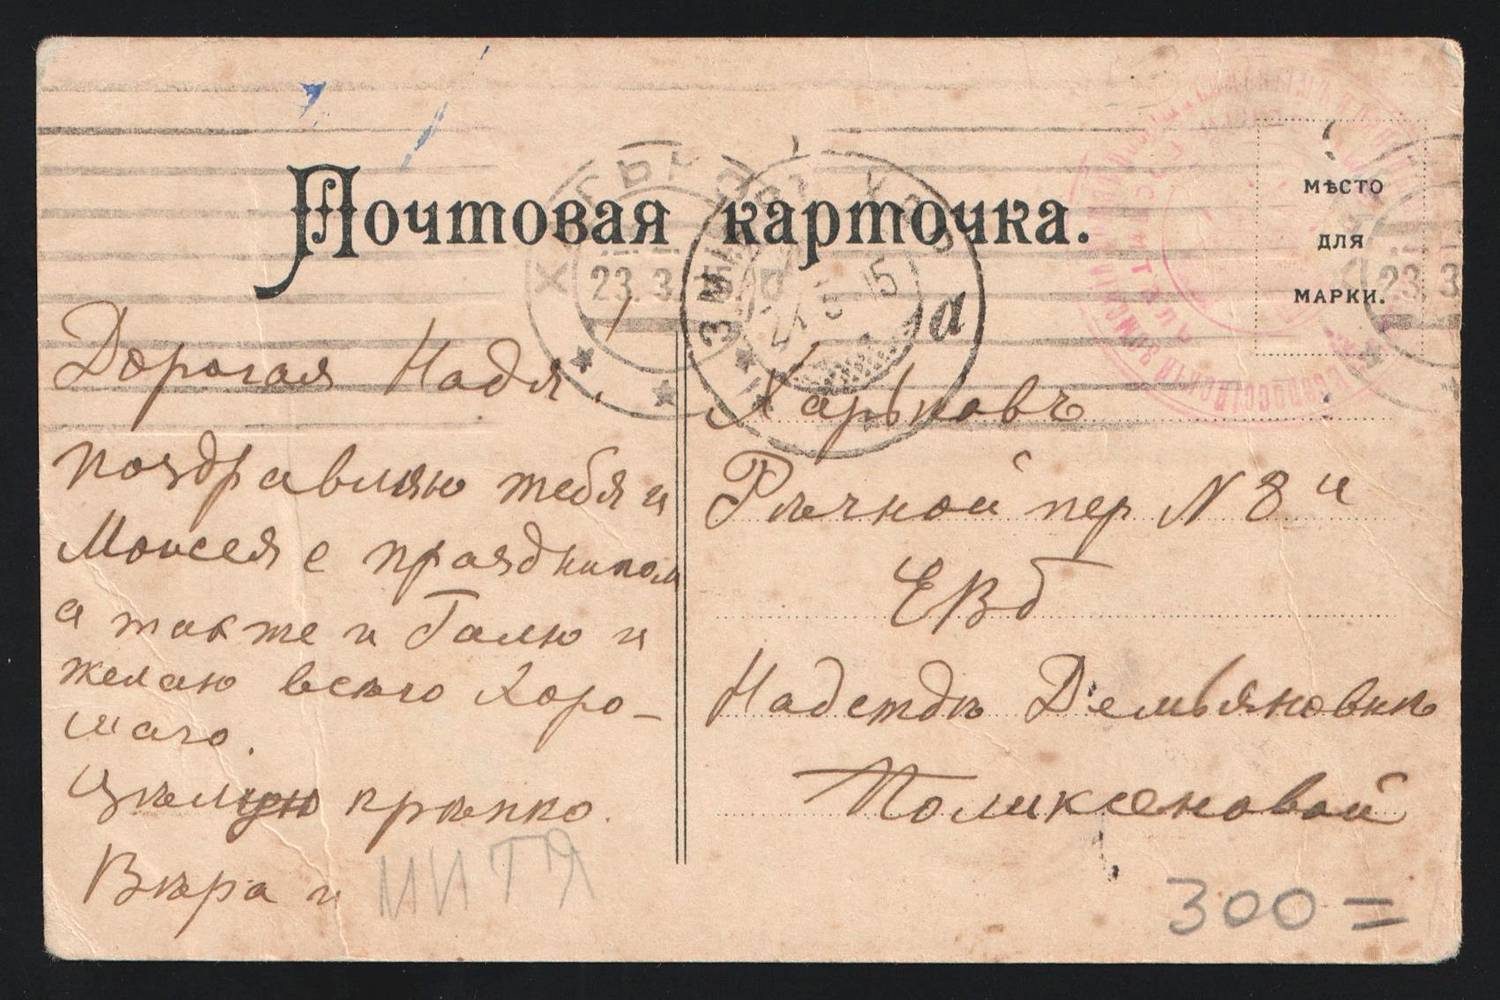 Почтовая карточка.
МѢСТО
ДЛЯ
МАРКИ.
23.3
24 3 15
23.3
Дорогая Надя!
поздравляю тебя и
Моисея с праздником
а также и Галю и
желаю всего Хоро-
шаго.
Цѣлую крѣпко.
Вѣра и МИТЯ
Харьковъ
Рѣчной пер N 8 й
ЕВб
Надеждѣ Демьяновнѣ
Поликсеновой
300=